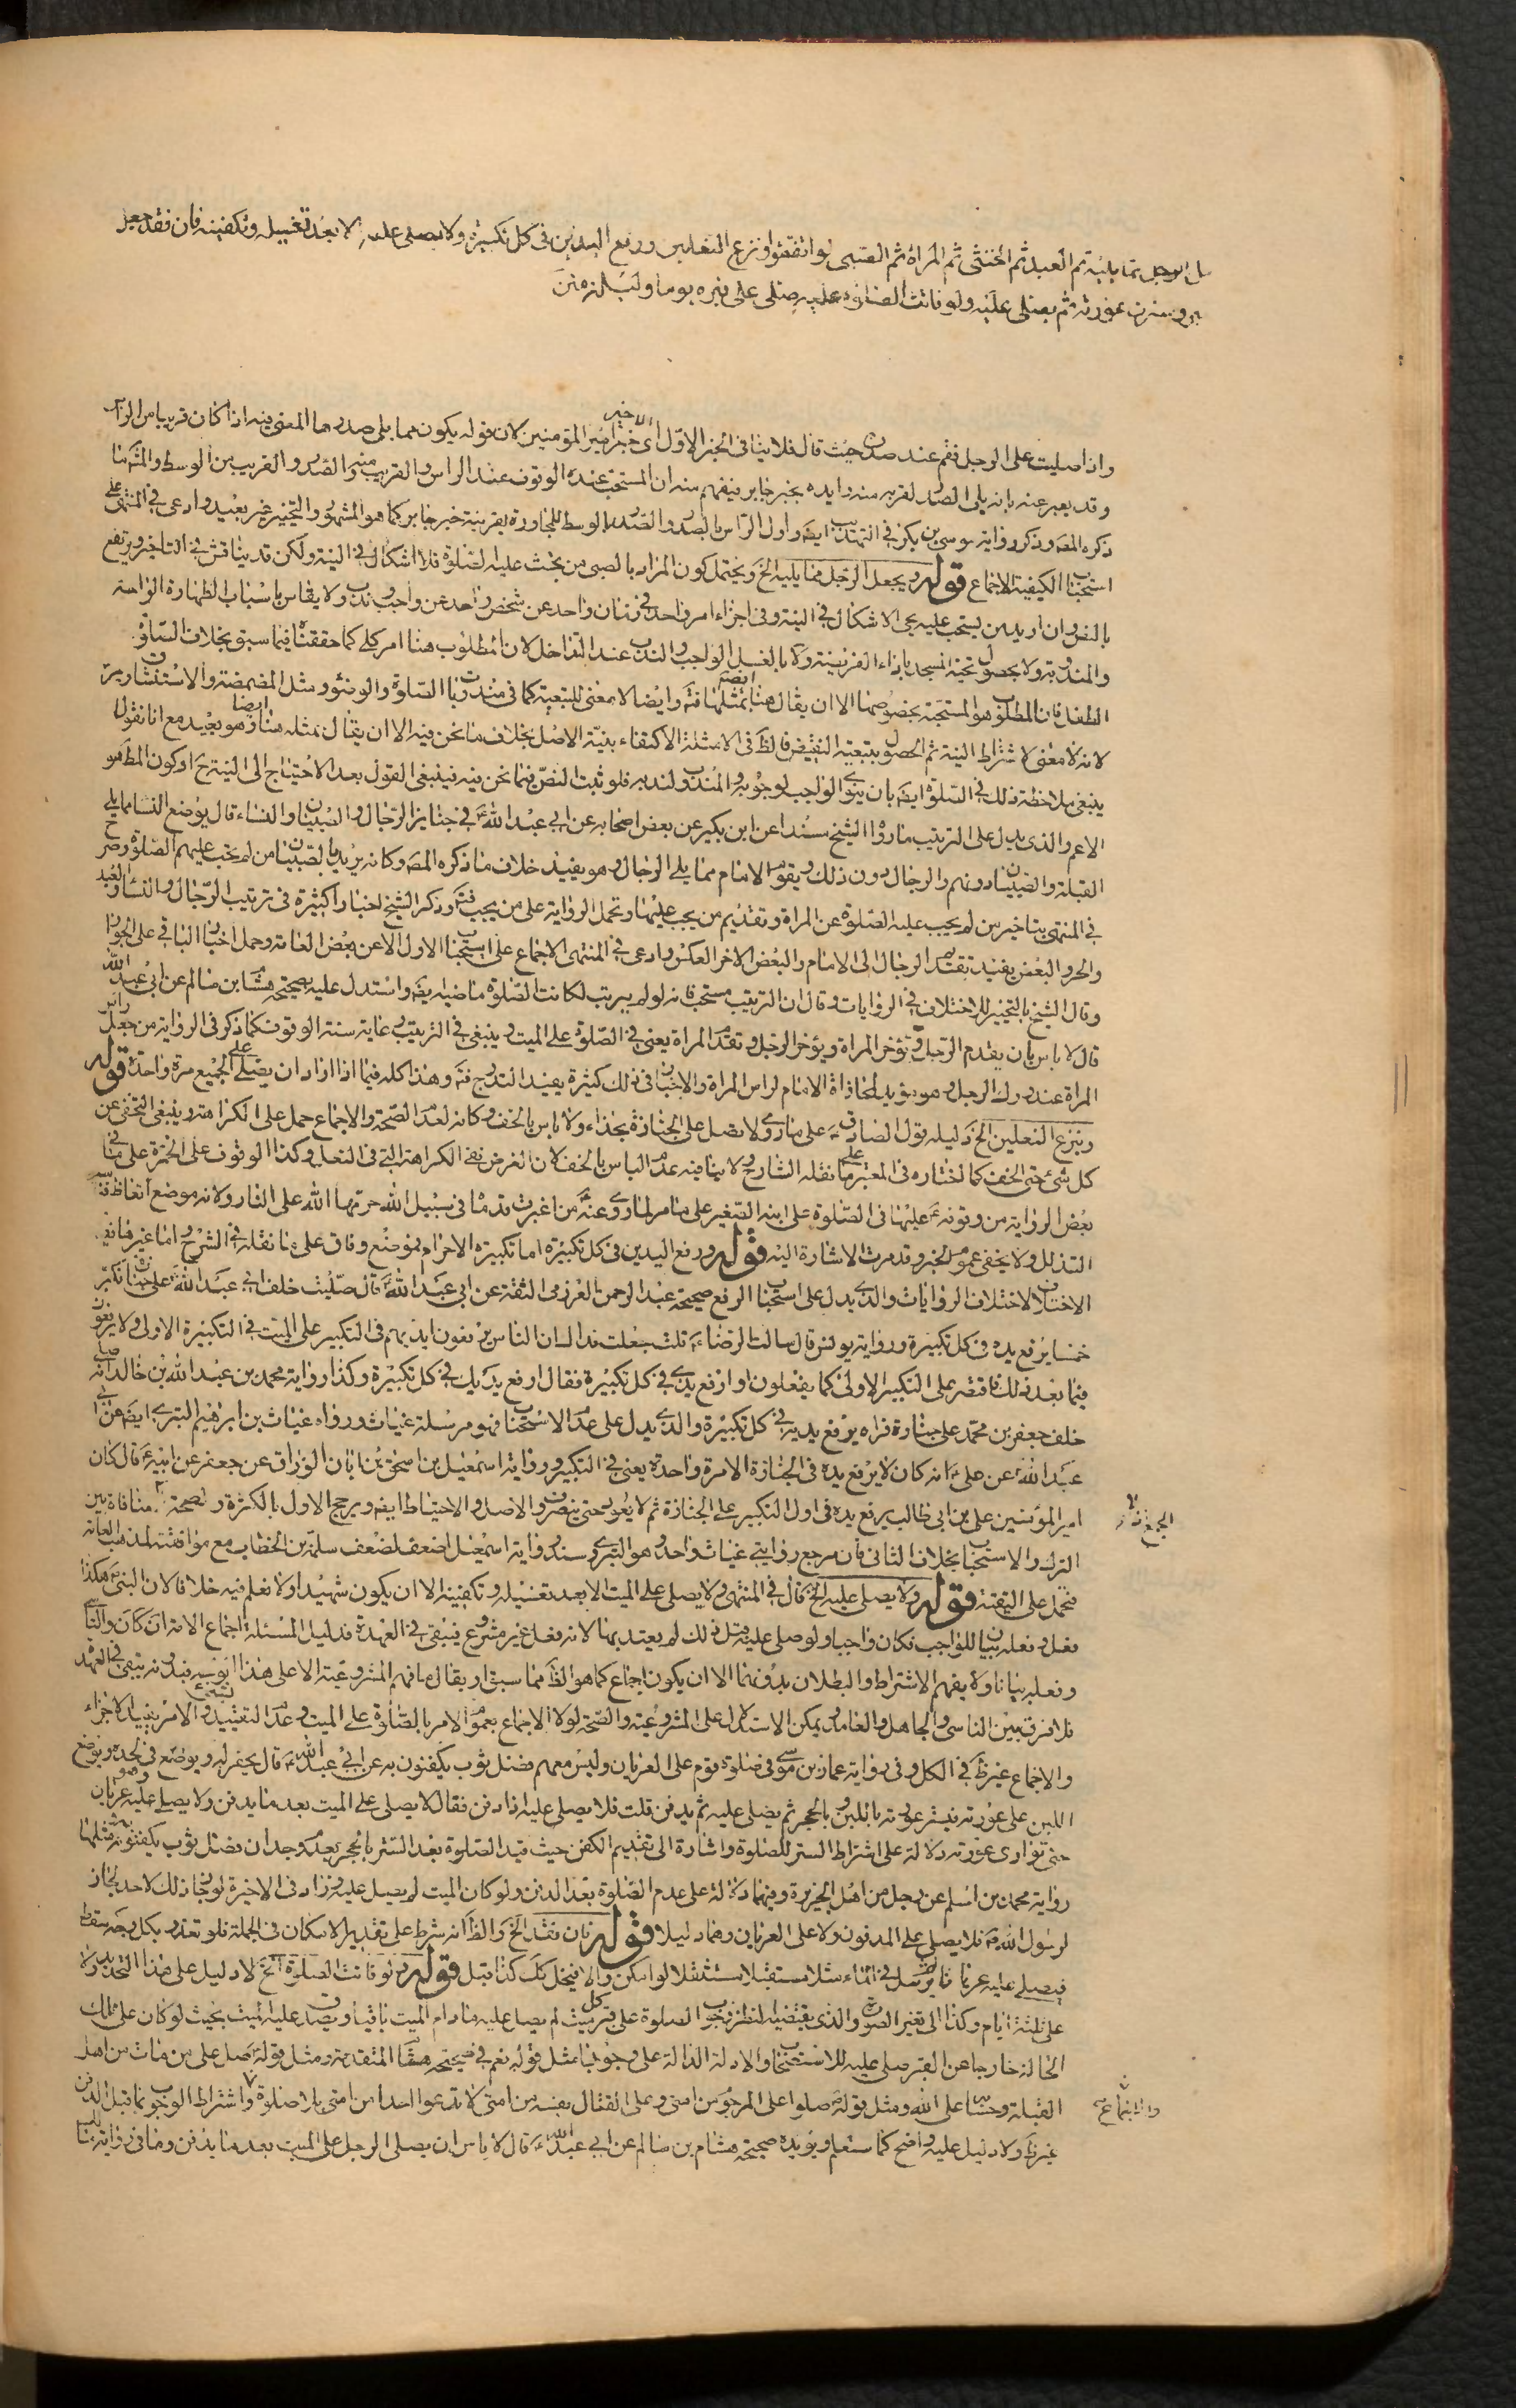 الرجل مما يليه ثم العبد ثم الخنثى ثم المراة ثم الصبى لو اتفقوا ونزع النعلين ورفع اليدين فى كل تكبيرة ولا يصلى عليه الا بعد تغسيله وتكفينه فان فقد جعل
وسترت عورته ثم يصلى عليه ولو فاتت الصلوة عليه صلى على قبره يوما وليلة
واذا صليت على الرجل فقم عند صدره حيث قال فلا ينافى الخبر الاول اى خبر امير المؤمنين لان قوله يكون مما يلى صدرها المعنى فيه اذا كان قريبا من الراس
وقد يعبر عنه بانه يلى الصدر لقربه منه وايده بخبر جابر فيفهم منه ان المستحب عنده الوقوف عند الراس والقريب منه والصدر والقريب من الوسط والمتن كما
ذكره المصـ وذكر رواية موسى بن بكر فى التهذيب ايضـ واول الراس بالصدر والصدر بالوسط للمجاورة بقرينة خبر جابر كما هو المشهور والتخيير غير بعيد وادعى فى المنتهى على
استحباب الكيفية الاجماع قوله ويجعل الرجل مما يليه الخ ويحتمل كون المراد بالصبى من يجب عليه الصلوة فلا اشكال فى النية ولكن قد يناقش فى التاخير ويرتفع
بالنص وان اريد من يستحب عليه يجى الاشكال فى النية وفى اجزاء امر واحد فى زمان واحد عن شخص واحد عن واجب وندب ولا يقاس باسباب الطهارة الواجبة
والمندوبة ولا بحصول تحية المسجد باداء الفريضة ولا بالغسل الواجب والندب عند التداخل لان المطلوب هنا امر كلى كما حققناه فيما سبق بخلاف الصلوة
الطفل فان المطلوب هو المستحبة بخصوصها الا ان يقال هنا بمثلها ثمة وايضا لا معنى للتبعية كما فى مندوبات الصلوة والوضوء مثل المضمضة والاستنشاق
لانه لا معنى لاشتراط النية ثم الحصول بتبعية النقيض فالظ فى الامثلة الاكتفاء بنية الاصل بخلاف ما نحن فيه الا ان يقال بمثله هنا ايضا وهو بعيد مع انا نقول
ينبغى ملاحظة ذلك فى الصلوة ايضـ بان ينوى الواجب لوجوبه والمندوب لندبه فلو ثبت النص فيما نحن فيه فينبغى القول بعد الاحتياج الى النية ح او كون المط هو
الاعم والذى يدل على الترتيب ما رواه الشيخ مسندا عن ابن بكير عن بعض اصحابه عن ابى عبد الله ع فى جنايز الرجال والصبيان والنساء قال يوضع النساء مما يلى
القبلة والصبيان دونهم والرجال دون ذلك ويقوم الامام مما يلى الرجال وهو يفيد خلاف ما ذكره المصـ وكانه يريد بالصبيان من لم يجب عليهم الصلوة وصرح
فى المنتهى بتاخير من لم يجب عليه الصلوة عن المراة وتقديم من يجب عليها وتحمل الرواية على من يجب فتـ وذكر الشيخ اخبارا كثيرة فى ترتيب الرجال والنساء والعبد
والحر والبعض يفيد تقديم الرجال الى الامام والبعض الاخر العكس وادعى فى المنتهى الاجماع على استحباب الاول الا عن بعض العامة وحمل اخبار الباقى على الجواز
وقال الشيخ بالتخيير للاختلاف فى الروايات وقال ان الترتيب مستحب فانه لو لم يترتب لكانت الصلوة ماضية ايضـ واستدل عليه بصحيحة هشام بن سالم عن ابى عبد الله
قال لا باس بان يقدم الرجل وتؤخر المراة ويؤخر الرجل وتقدم المراة يعنى فى الصلوة على الميت وينبغى فى الترتيب رعاية سنة الوقوف كما ذكر فى الرواية من جعل راس
المراة عند ورك الرجل وهو مؤيد لمحاذاة الامام لراس المراة والاخبار فى ذلك كثيرة يفيد التدرج فتـ وهذا كله فيما اذا اراد ان يصلى على الجميع مرة واحدة قوله
وينزع النعلين الخ دليله قول الصادق ع على ما روى ولا تصل على الجنازة بحذاء ولا باس بالخف وكانه لعدم الصحة والاجماع حمل على الكراهة وينبغى التحفى عن
كل شئ حتى الخف كما اختاره فى المعتبر على ما نقله الشارح ولا ينافيه عدم الباس بالخف لان الغرض نفى الكراهة التى فى النعل وكذا الوقوف على الخمرة على ما فى
بعض الرواية من وقوفه ع عليها فى الصلوة على ابنه الصغير على ما مر لما روى عنه ص من اغبرت قدماه فى سبيل الله حرمهما الله على النار ولانه موضع اتعاظ فتـ
التذلل ولا يخفى عموم الخبر وقد مرت الاشارة اليه قوله ورفع اليدين فى كل تكبيرة اما تكبيرة الاحرام فموضع وفاق على ما نقله فى الشرح واما غيرها ففيه
الاختلاف لاختلاف الروايات والذى يدل على استحباب الرفع صحيحة عبد الرحمن العرزمى الثقة عن ابى عبد الله ع قال صليت خلف ابى عبد الله ع على جنازة فكبر
خمسا يرفع يده فى كل تكبيرة ورواية يونس قال سالت الرضا ع قلت جعلت فداك ان الناس يرفعون ايديهم فى التكبير على الميت فى التكبيرة الاولى ولا يرفعون
فيما بعد ذلك فاقتصر على التكبير الاولى كما يفعلون او ارفع يدى فى كل تكبيرة فقال ارفع يديك فى كل تكبيرة وكذا رواية محمد بن عبد الله بن خالد انه صلى
خلف جعفر بن محمد على جنازة فراه يرفع يديه فى كل تكبيرة والذى يدل على عدم الاستحباب فهو مرسلة غياث ورواه غياث بن ابراهيم البترى ايضـ عن ابى
عبد الله ع عن على ع انه كان لا يرفع يده فى الجنازة الا مرة واحدة يعنى فى التكبير ورواية اسمعيل بن اسحق بن ابان الوراق عن جعفر عن ابيه ع قال كان
امير المؤمنين على بن ابى طالب يرفع يده فى اول التكبير على الجنازة ثم لا يعود حتى ينصرف والاصل والاحتياط ايضـ ويرجح الاول بالكثرة والصحة منافاة بين
الترك والاستحباب بخلاف الثانى فان مرجع روايتى غياث واحد وهو البترى وسند رواية اسمعيل اضعف لضعف سلمة بن الخطاب مع موافقته لمذهب العامة
فتحمل على التقية قوله ولا يصلى عليه الخ قال فى المنتهى ولا يصلى على الميت الا بعد تغسيله وتكفينه الا ان يكون شهيدا ولا نعلم فيه خلافا لان النبى ص هكذا
فعل وفعله بيان للواجب فكان واجبا ولو صلى عليه قبل ذلك لم يعتد بها لانه فعل غير مشروع فيبقى فى العهدة فدليل المسئلة اجماع الامة ان كان والتاسى
وفعله بيانا ولا يفهم الاشتراط والبطلان بدونها الا ان يكون اجماع كما هو الظ مما سبق او يقال ما فهم المشروعية الا على هذا الوجه فبدونه يبقى فى العهدة
فلا فرق بين الناسى والجاهل والعامد ويمكن الاستدلال على المشروعية والصحة لولا الاجماع بعموم الامر بالصلوة على الميت وعدم التقييد والامر يفيد الاجزاء
والاجماع غير ظ فى الكل وفى رواية عمار بن موسى فى صلوة قوم على العريان وليس معهم فضل ثوب يكفنونه به عن ابى عبد الله ع قال يحفر له ويوضع فى لحده ويوضع
اللبن على عورته فيستر عورته باللبن وبالحجر ثم يصلى عليه ثم يدفن قلت فلا يصلى عليه اذا دفن فقال لا يصلى على الميت بعد ما يدفن ولا يصلى عليه وهو عريان
حتى توارى عورته دلالة على اشتراط الستر للصلوة واشارة الى تقديم الكفن حيث قيد الصلوة بعد الستر بالحجر بعدم وجدان فضل ثوب يكفنونه به ومثلها
رواية محمد بن اسلم عن رجل من اهل الجزيرة وفيهما دلالة على عدم الصلوة بعد الدفن ولو كان الميت لم يصل عليه وزاد فى الاخيرة لو جاز ذلك لاحد لجاز
لرسول الله ص فلا يصلى على المدفون ولا على العريان وهما دليلا قوله فان فقد الخ والظ انه شرط على تقدير الامكان فى الجملة فلو تعذر بكل وجه سقط
فيصلى عليه عريانا قوله ولو فاتت الصلوة الخ لا دليل على هذا التحديد ولا
على ثلثة ايام وكذا الى تغير الصورة والذى يقتضيه النظر وجوب الصلوة على قبر كل ميت لم يصل عليه ما دام الميت باقيا ويصدق عليه الميت بحيث لو كان على تلك
الحالة خارجا عن القبر صلى عليه للاستصحاب والادلة الدالة على وجوبها مثل قوله نعم فى صحيحة هشام المتقدمة ومثل قوله صل على من مات من اهل
القبلة وحسابه على الله ومثل قوله ص صلوا على المرجوم من امتى وعلى القتال نفسه من امتى لا تدعوا احدا من امتى بلا صلوة واشتراط الوجوب بما قبل الدفن
غير ظ ولا دليل عليه واضح كما ستعلم ويؤيده صحيحة هشام بن سالم عن ابى عبد الله ع قال لا باس ان يصلى الرجل على الميت بعد ما يدفن وما فى رواية